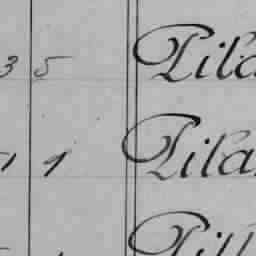 3 5 Pila
1 1 Pila